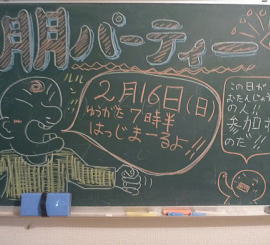 朋パーティー
ルルン
2月16日(日)
ゆうがた7時半
はっじまーるよー!!
この日が
おたんじょ
の人!!
参加
のだ!!